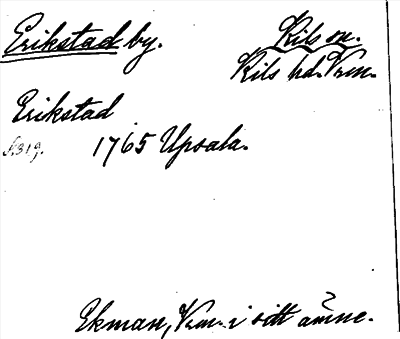 Erikstad by. Kils sn.
Kils hd. Vrm.
Erikstad
1765 Upsala.
Ekman, Vrm. i sitt ämne.